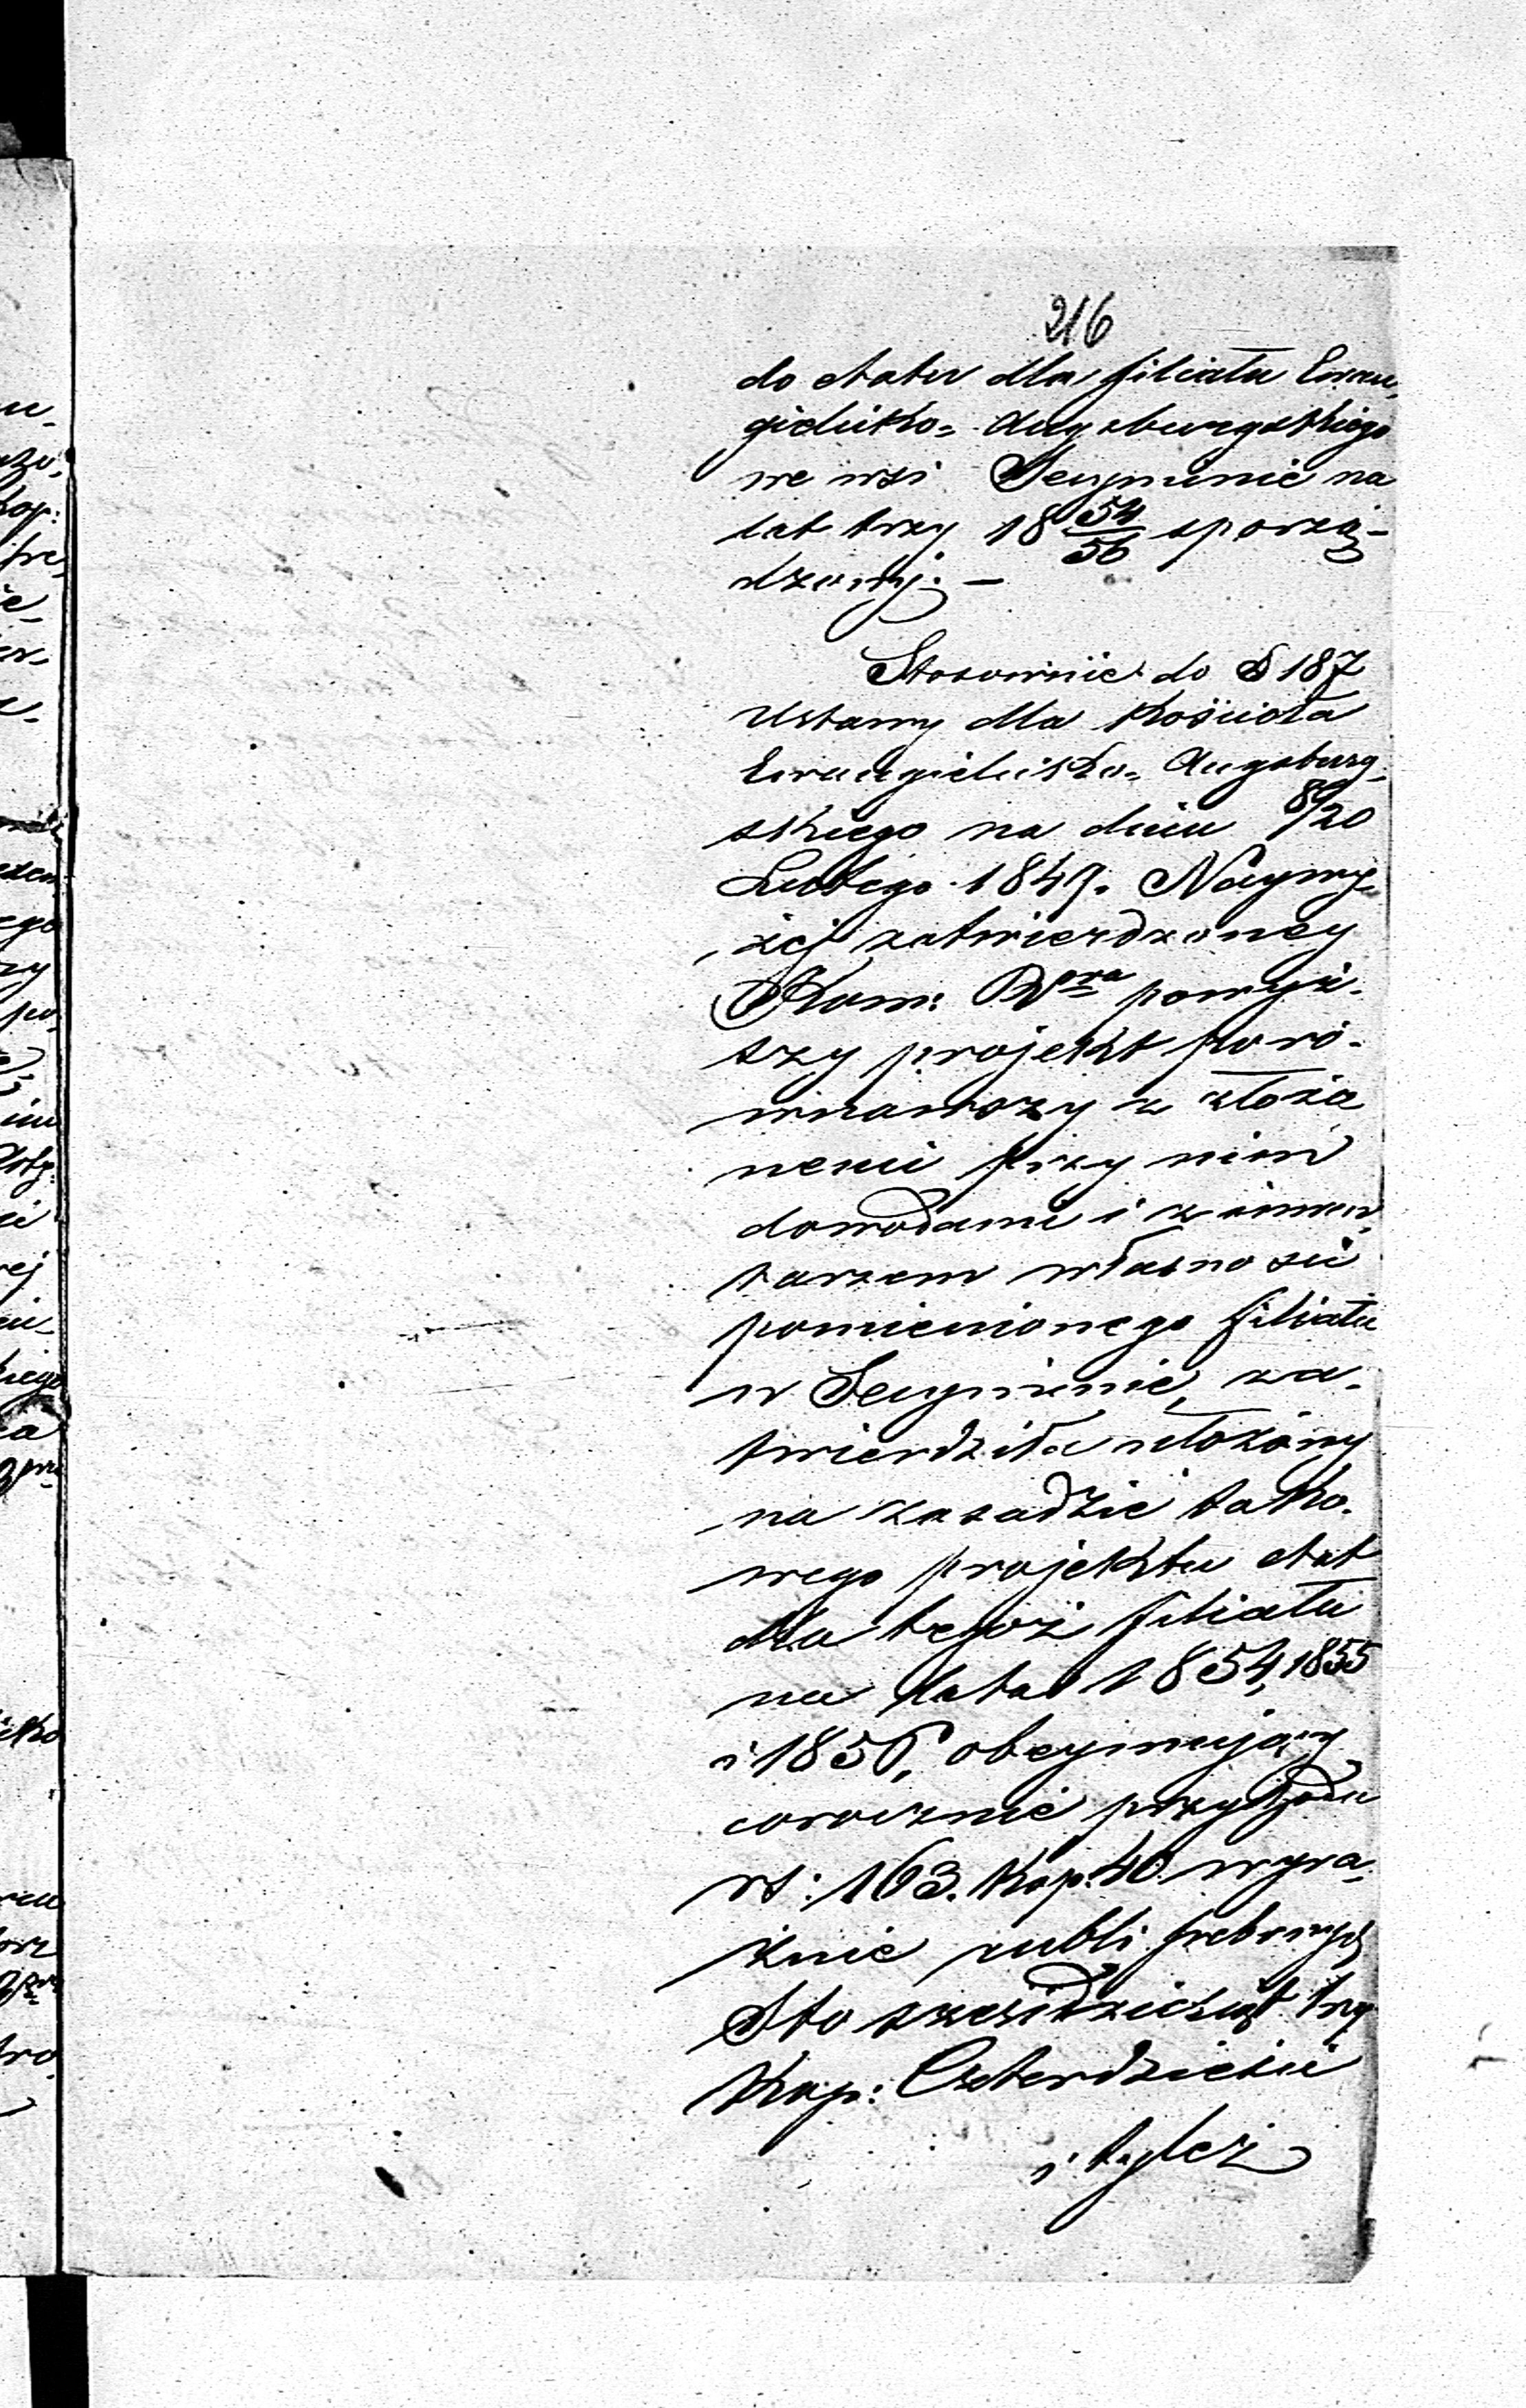 216
do etatu dla filiału Ewan¬
gielicko= Augsburgskiego
we wsi Seyminie na
lat trzy 18 54/56 sporzą-
dzonej. —
Stosownie do § 187
Ustawy dla Kościoła
Ewangielicko= Augsburg-
skiego na dniu 8/20
Lutego 1849. Naywy-
żej zatwierdzoney
Kom: Rz̲ᵒʷᵃ powyż-
szy projekt poró-
wnawszy z złożo
nemi przy nim
dowodami i z inwen¬
tarzem własności
pomienionego filiału
w Seyminie, za-
twierdziła ułożony
na zasadzie tako-
wego projektu etat
dla tegoż filiału
na lata 1854, 1855
i 1856, obeymujący
corocznie przychodu
rs: 163. Kop. 40 wyra-
źnie rubli srebrnych
Sto sześćdziesiąt trzy
Kop: Czterdzieści
i tyleż